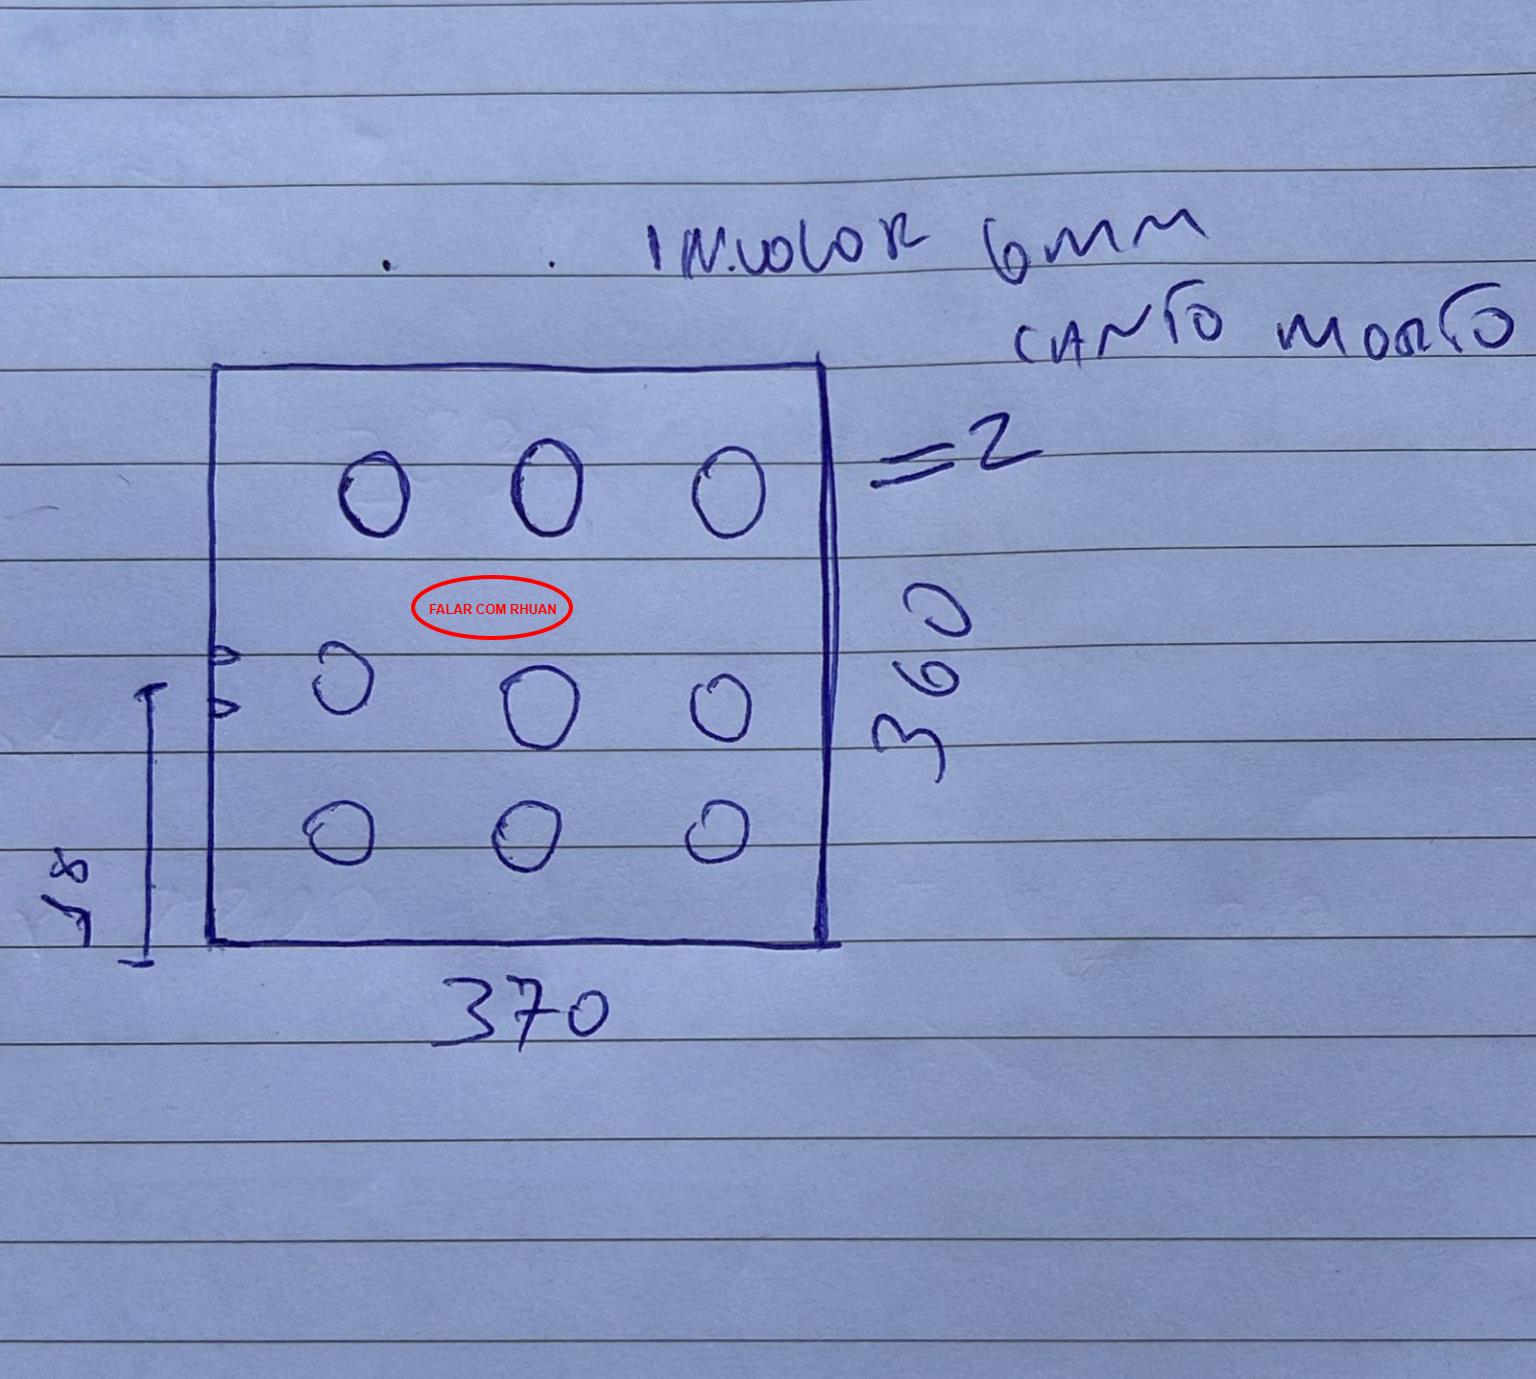 INCOLOR 6MM
CANTO MORTO
=2
FALAR COM RHUAN
360
18
370